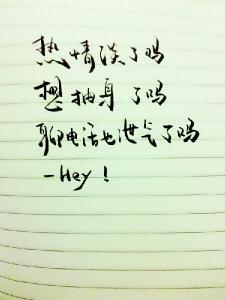 热情淡了吗
想抽身了吗
聊电话也泄气了吗
-Hey!